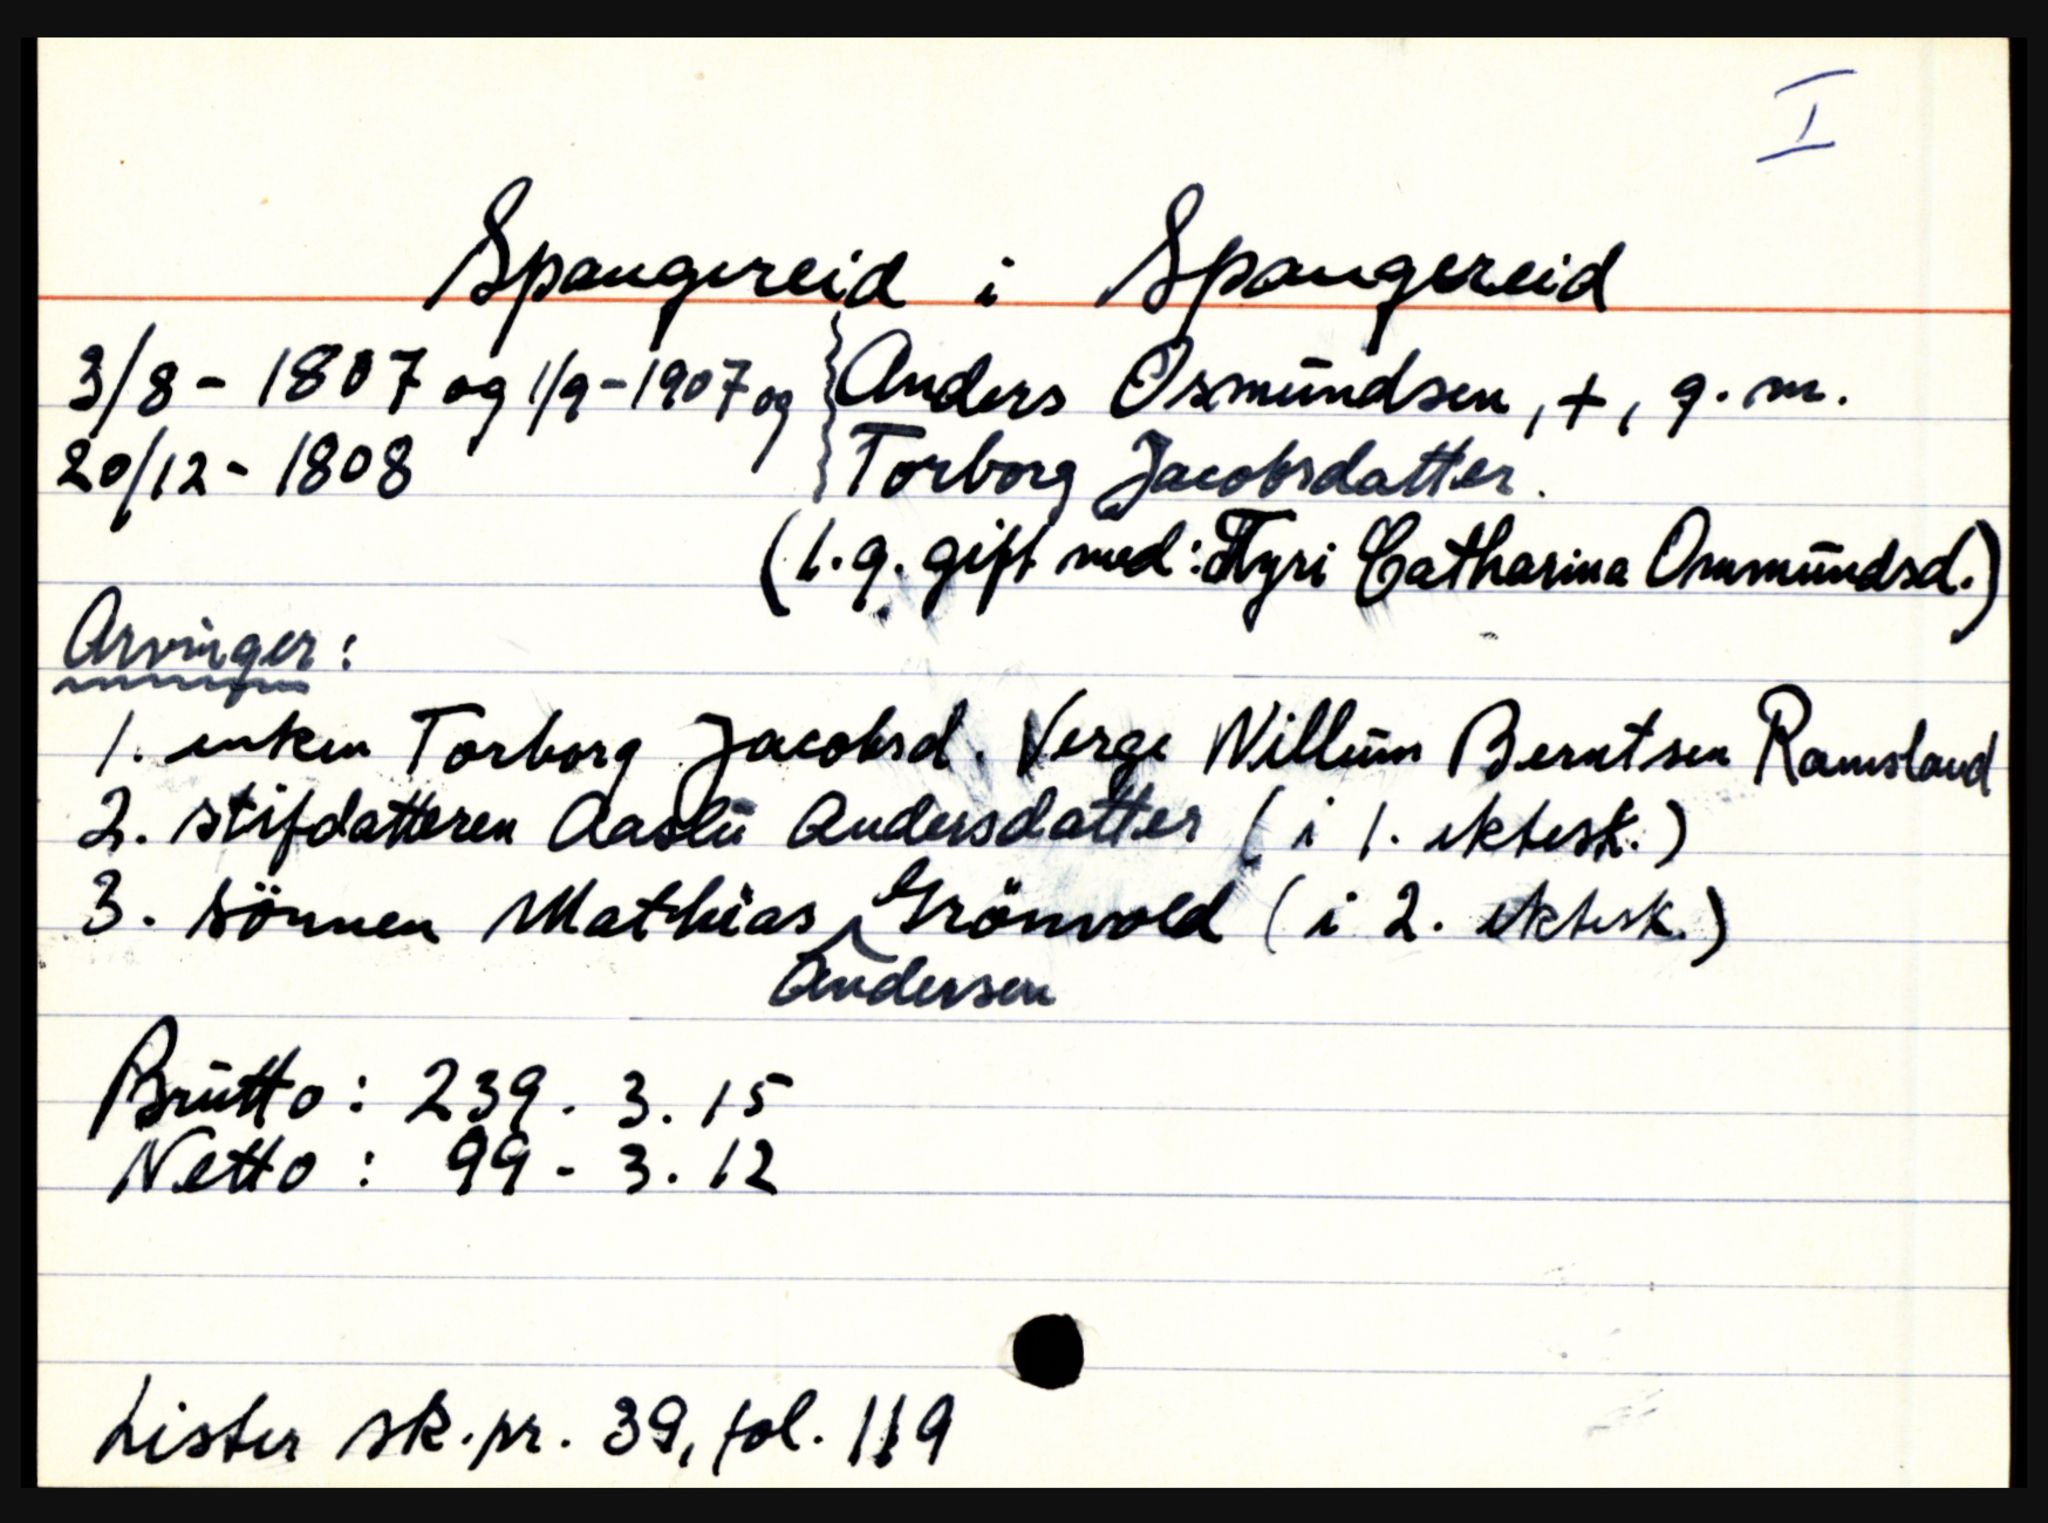 I
Spangereid i Spangereid
3/8 - 1807 og 1/9 - 1907 og } Anders Osmundsen, +, g. m.
20/12 - 1808 } Torborg Jacobsdatter.
(1. g. gift med: Tyri Catharina Ommundsd.)
Arvinger:
1. enken Torborg Jacobsd. Verge Willum Berntsen Ramsland
2. stifdatteren Aaslu Andersdatter (i 1. ektesk.)
3. sönnen Mathias Grönvold (i 2. ektesk.)
Andersen
Brutto: 239 - 3. 15
Netto: 99 - 3. 12
Lister sk.pr. 39, fol. 119